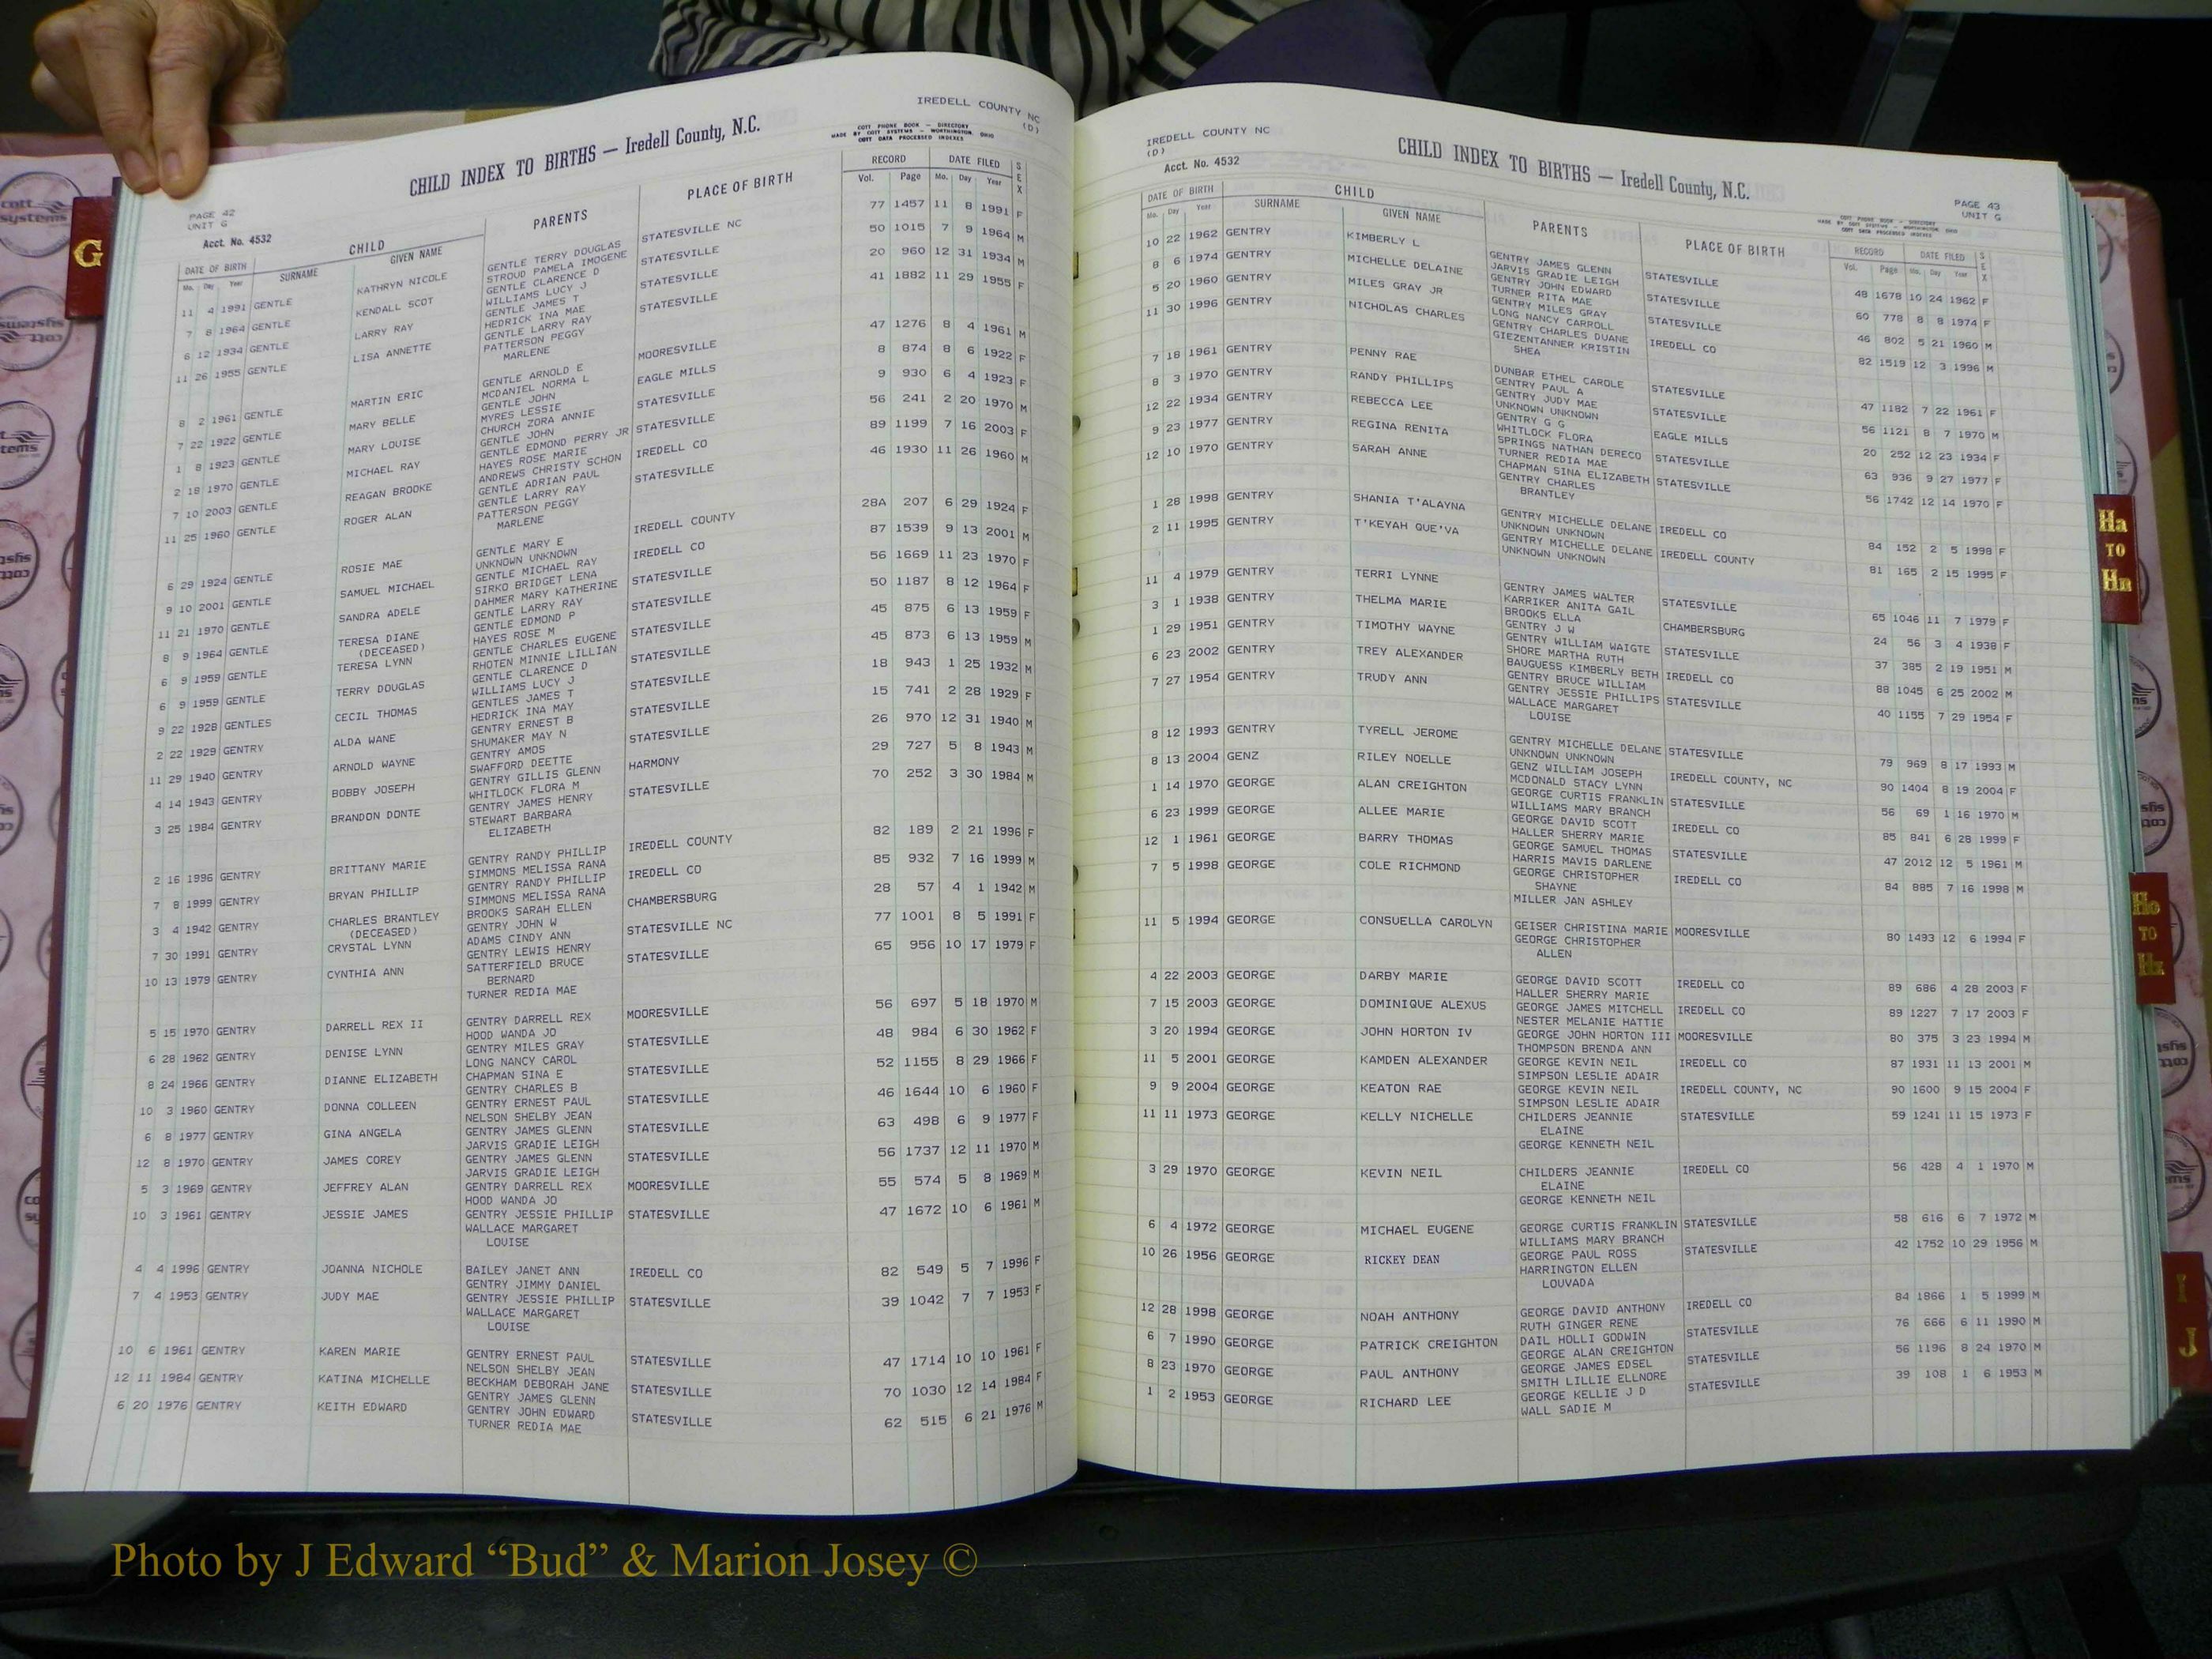 IREDELL COUNTY NC
(D)
CHILD INDEX TO BIRTHS — Iredell County, N.C.
COTT PHONE BOOK — DIRECTORY
MADE BY COTT SYSTEMS — WORTHINGTON OHIO
COTT DATA PROCESSED INDEXES
PAGE 42
UNIT G
Acct. No. 4532
DATE OF BIRTH CHILD PARENTS PLACE OF BIRTH RECORD DATE FILED SEX
Mo. Day Year SURNAME GIVEN NAME Vol. Page Mo. Day Year
11 4 1991 GENTLE KATHRYN NICOLE GENTLE TERRY DOUGLAS STATESVILLE NC 77 1457 11 8 1991 F
STROUD PAMELA IMOGENE
7 8 1964 GENTLE KENDALL SCOT GENTLE CLARENCE D STATESVILLE 50 1015 7 9 1964 M
WILLIAMS LUCY J
6 12 1934 GENTLE LARRY RAY GENTLE JAMES T STATESVILLE 20 960 12 31 1934 M
HEDRICK INA MAE
11 26 1955 GENTLE LISA ANNETTE GENTLE LARRY RAY STATESVILLE 41 1882 11 29 1955 F
PATTERSON PEGGY
MARLENE
8 2 1961 GENTLE MARTIN ERIC GENTLE ARNOLD E MOORESVILLE 47 1276 8 4 1961 M
MCDANIEL NORMA L
7 22 1922 GENTLE MARY BELLE GENTLE JOHN EAGLE MILLS 8 874 8 6 1922 F
MYRES LESSIE
1 8 1923 GENTLE MARY LOUISE CHURCH ZORA ANNIE STATESVILLE 9 930 6 4 1923 F
GENTLE JOHN
2 18 1970 GENTLE MICHAEL RAY GENTLE EDMOND PERRY JR STATESVILLE 56 241 2 20 1970 M
HAYES ROSE MARIE
7 10 2003 GENTLE REAGAN BROOKE ANDREWS CHRISTY SCHON IREDELL CO 89 1199 7 16 2003 F
GENTLE ADRIAN PAUL
11 25 1960 GENTLE ROGER ALAN GENTLE LARRY RAY STATESVILLE 46 1930 11 26 1960 M
PATTERSON PEGGY
MARLENE
6 29 1924 GENTLE ROSIE MAE GENTLE MARY E IREDELL COUNTY 28A 207 6 29 1924 F
UNKNOWN UNKNOWN
9 10 2001 GENTLE SAMUEL MICHAEL GENTLE MICHAEL RAY IREDELL CO 87 1539 9 13 2001 M
SIRKO BRIDGET LENA
11 21 1970 GENTLE SANDRA ADELE DAHMER MARY KATHERINE STATESVILLE 56 1669 11 23 1970 F
GENTLE LARRY RAY
8 9 1964 GENTLE TERESA DIANE GENTLE EDMOND P STATESVILLE 50 1187 8 12 1964 F
(DECEASED) HAYES ROSE M
6 9 1959 GENTLE TERESA LYNN GENTLE CHARLES EUGENE STATESVILLE 45 875 6 13 1959 F
RHOTEN MINNIE LILLIAN
6 9 1959 GENTLE TERRY DOUGLAS GENTLE CLARENCE D STATESVILLE 45 873 6 13 1959 M
WILLIAMS LUCY J
9 22 1928 GENTLES CECIL THOMAS GENTLES JAMES T STATESVILLE 18 943 1 25 1932 M
HEDRICK INA MAY
2 22 1929 GENTRY ALDA WANE GENTRY ERNEST B STATESVILLE 15 741 2 28 1929 F
SHUMAKER MAY N
11 29 1940 GENTRY ARNOLD WAYNE GENTRY AMOS STATESVILLE 26 970 12 31 1940 M
SWAFFORD DEETTE
4 14 1943 GENTRY BOBBY JOSEPH GENTRY GILLIS GLENN HARMONY 29 727 5 8 1943 M
WHITLOCK FLORA M
3 25 1984 GENTRY BRANDON DONTE GENTRY JAMES HENRY STATESVILLE 70 252 3 30 1984 M
STEWART BARBARA
ELIZABETH
2 16 1996 GENTRY BRITTANY MARIE GENTRY RANDY PHILLIP IREDELL COUNTY 82 189 2 21 1996 F
SIMMONS MELISSA RANA
7 8 1999 GENTRY BRYAN PHILLIP GENTRY RANDY PHILLIP IREDELL CO 85 932 7 16 1999 M
SIMMONS MELISSA RANA
3 4 1942 GENTRY CHARLES BRANTLEY BROOKS SARAH ELLEN CHAMBERSBURG 28 57 4 1 1942 M
(DECEASED) GENTRY JOHN W
7 30 1991 GENTRY CRYSTAL LYNN ADAMS CINDY ANN STATESVILLE NC 77 1001 8 5 1991 F
GENTRY LEWIS HENRY
10 13 1979 GENTRY CYNTHIA ANN SATTERFIELD BRUCE STATESVILLE 65 956 10 17 1979 F
BERNARD
TURNER REDIA MAE
5 15 1970 GENTRY DARRELL REX II GENTRY DARRELL REX MOORESVILLE 56 697 5 18 1970 M
HOOD WANDA JO
6 28 1962 GENTRY DENISE LYNN GENTRY MILES GRAY STATESVILLE 48 984 6 30 1962 F
LONG NANCY CAROL
8 24 1966 GENTRY DIANNE ELIZABETH CHAPMAN SINA E STATESVILLE 52 1155 8 29 1966 F
GENTRY CHARLES B
10 3 1960 GENTRY DONNA COLLEEN GENTRY ERNEST PAUL STATESVILLE 46 1644 10 6 1960 F
NELSON SHELBY JEAN
6 8 1977 GENTRY GINA ANGELA GENTRY JAMES GLENN STATESVILLE 63 498 6 9 1977 F
JARVIS GRADIE LEIGH
12 8 1970 GENTRY JAMES COREY GENTRY JAMES GLENN STATESVILLE 56 1737 12 11 1970 M
JARVIS GRADIE LEIGH
5 3 1969 GENTRY JEFFREY ALAN GENTRY DARRELL REX MOORESVILLE 55 574 5 8 1969 M
HOOD WANDA JO
10 3 1961 GENTRY JESSIE JAMES GENTRY JESSIE PHILLIP STATESVILLE 47 1672 10 6 1961 M
WALLACE MARGARET
LOUISE
4 4 1996 GENTRY JOANNA NICHOLE BAILEY JANET ANN IREDELL CO 82 549 5 7 1996 F
GENTRY JIMMY DANIEL
7 4 1953 GENTRY JUDY MAE GENTRY JESSIE PHILLIP STATESVILLE 39 1042 7 7 1953 F
WALLACE MARGARET
LOUISE
10 6 1961 GENTRY KAREN MARIE GENTRY ERNEST PAUL STATESVILLE 47 1714 10 10 1961 F
NELSON SHELBY JEAN
12 11 1984 GENTRY KATINA MICHELLE BECKHAM DEBORAH JANE STATESVILLE 70 1030 12 14 1984 F
GENTRY JAMES GLENN
6 20 1976 GENTRY KEITH EDWARD GENTRY JOHN EDWARD STATESVILLE 62 515 6 21 1976 M
TURNER REDIA MAE
IREDELL COUNTY NC
(D)
Acct. No. 4532
CHILD INDEX TO BIRTHS — Iredell County, N.C.
PAGE 43
UNIT G
COTT PHONE BOOK — DIRECTORY
MADE BY COTT SYSTEMS — WORTHINGTON OHIO
COTT DATA PROCESSED INDEXES
DATE OF BIRTH CHILD PARENTS PLACE OF BIRTH RECORD DATE FILED SEX
Mo. Day Year SURNAME GIVEN NAME Vol. Page Mo. Day Year
10 22 1962 GENTRY KIMBERLY L GENTRY JAMES GLENN STATESVILLE 48 1678 10 24 1962 F
JARVIS GRADIE LEIGH
8 6 1974 GENTRY MICHELLE DELAINE GENTRY JOHN EDWARD STATESVILLE 60 778 8 8 1974 F
TURNER RITA MAE
5 20 1960 GENTRY MILES GRAY JR GENTRY MILES GRAY STATESVILLE 46 802 5 21 1960 M
LONG NANCY CARROLL
11 30 1996 GENTRY NICHOLAS CHARLES GENTRY CHARLES DUANE IREDELL CO 82 1519 12 3 1996 M
GIEZENTANNER KRISTIN
SHEA
7 18 1961 GENTRY PENNY RAE DUNBAR ETHEL CAROLE STATESVILLE 47 1182 7 22 1961 F
GENTRY PAUL A
8 3 1970 GENTRY RANDY PHILLIPS GENTRY JUDY MAE STATESVILLE 56 1121 8 7 1970 M
UNKNOWN UNKNOWN
12 22 1934 GENTRY REBECCA LEE GENTRY G G EAGLE MILLS 20 252 12 23 1934 F
WHITLOCK FLORA
9 23 1977 GENTRY REGINA RENITA SPRINGS NATHAN DERECO STATESVILLE 63 936 9 27 1977 F
TURNER REDIA MAE
12 10 1970 GENTRY SARAH ANNE CHAPMAN SINA ELIZABETH STATESVILLE 56 1742 12 14 1970 F
GENTRY CHARLES
BRANTLEY
1 28 1998 GENTRY SHANIA T'ALAYNA GENTRY MICHELLE DELANE IREDELL CO 84 152 2 5 1998 F
UNKNOWN UNKNOWN
2 11 1995 GENTRY T'KEYAH QUE'VA GENTRY MICHELLE DELANE IREDELL COUNTY 81 165 2 15 1995 F
UNKNOWN UNKNOWN
11 4 1979 GENTRY TERRI LYNNE GENTRY JAMES WALTER STATESVILLE 65 1046 11 7 1979 F
KARRIKER ANITA GAIL
3 1 1938 GENTRY THELMA MARIE BROOKS ELLA CHAMBERSBURG 24 56 3 4 1938 F
GENTRY J W
1 29 1951 GENTRY TIMOTHY WAYNE GENTRY WILLIAM WAIGTE STATESVILLE 37 385 2 19 1951 M
SHORE MARTHA RUTH
6 23 2002 GENTRY TREY ALEXANDER BAUGUESS KIMBERLY BETH IREDELL CO 88 1045 6 25 2002 M
GENTRY BRUCE WILLIAM
7 27 1954 GENTRY TRUDY ANN GENTRY JESSIE PHILLIPS STATESVILLE 40 1155 7 29 1954 F
WALLACE MARGARET
LOUISE
8 12 1993 GENTRY TYRELL JEROME GENTRY MICHELLE DELANE STATESVILLE 79 969 8 17 1993 M
UNKNOWN UNKNOWN
8 13 2004 GENZ RILEY NOELLE GENZ WILLIAM JOSEPH IREDELL COUNTY, NC 90 1404 8 19 2004 F
MCDONALD STACY LYNN
1 14 1970 GEORGE ALAN CREIGHTON GEORGE CURTIS FRANKLIN STATESVILLE 56 69 1 16 1970 M
WILLIAMS MARY BRANCH
6 23 1999 GEORGE ALLEE MARIE GEORGE DAVID SCOTT IREDELL CO 85 841 6 28 1999 F
HALLER SHERRY MARIE
12 1 1961 GEORGE BARRY THOMAS GEORGE SAMUEL THOMAS STATESVILLE 47 2012 12 5 1961 M
HARRIS MAVIS DARLENE
7 5 1998 GEORGE COLE RICHMOND GEORGE CHRISTOPHER IREDELL CO 84 885 7 16 1998 M
SHAYNE
MILLER JAN ASHLEY
11 5 1994 GEORGE CONSUELLA CAROLYN GEISER CHRISTINA MARIE MOORESVILLE 80 1493 12 6 1994 F
GEORGE CHRISTOPHER
ALLEN
4 22 2003 GEORGE DARBY MARIE GEORGE DAVID SCOTT IREDELL CO 89 686 4 28 2003 F
HALLER SHERRY MARIE
7 15 2003 GEORGE DOMINIQUE ALEXUS GEORGE JAMES MITCHELL IREDELL CO 89 1227 7 17 2003 F
NESTER MELANIE HATTIE
3 20 1994 GEORGE JOHN HORTON IV GEORGE JOHN HORTON III MOORESVILLE 80 375 3 23 1994 M
THOMPSON BRENDA ANN
11 5 2001 GEORGE KAMDEN ALEXANDER GEORGE KEVIN NEIL IREDELL CO 87 1931 11 13 2001 M
SIMPSON LESLIE ADAIR
9 9 2004 GEORGE KEATON RAE GEORGE KEVIN NEIL IREDELL COUNTY, NC 90 1600 9 15 2004 F
SIMPSON LESLIE ADAIR
11 11 1973 GEORGE KELLY NICHELLE CHILDERS JEANNIE STATESVILLE 59 1241 11 15 1973 F
ELAINE
GEORGE KENNETH NEIL
3 29 1970 GEORGE KEVIN NEIL CHILDERS JEANNIE IREDELL CO 56 428 4 1 1970 M
ELAINE
GEORGE KENNETH NEIL
6 4 1972 GEORGE MICHAEL EUGENE GEORGE CURTIS FRANKLIN STATESVILLE 58 616 6 7 1972 M
WILLIAMS MARY BRANCH
10 26 1956 GEORGE RICKEY DEAN GEORGE PAUL ROSS STATESVILLE 42 1752 10 29 1956 M
HARRINGTON ELLEN
LOUVADA
12 28 1998 GEORGE NOAH ANTHONY GEORGE DAVID ANTHONY IREDELL CO 84 1866 1 5 1999 M
RUTH GINGER RENE
6 7 1990 GEORGE PATRICK CREIGHTON DAIL HOLLI GODWIN STATESVILLE 76 666 6 11 1990 M
GEORGE ALAN CREIGHTON
8 23 1970 GEORGE PAUL ANTHONY GEORGE JAMES EDSEL STATESVILLE 56 1196 8 24 1970 M
SMITH LILLIE ELLNORE
1 2 1953 GEORGE RICHARD LEE GEORGE KELLIE J D STATESVILLE 39 108 1 6 1953 M
WALL SADIE M
G
Ha
TO
Hn
Ho
TO
Hz
I
J
Photo by J Edward “Bud” & Marion Josey ©